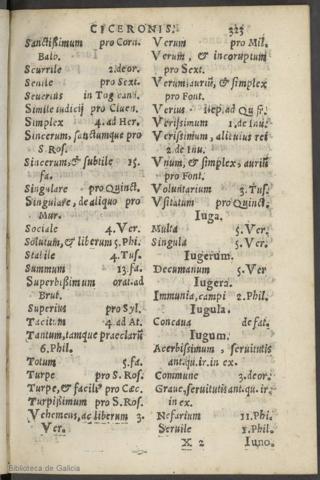 CICERONIS. 323
Sanctißimum pro Corn.
Balo.
Scurrile 2.de or.
Senile pro Sext.
Seuerius in Tog cand.
Simile iudicij pro Cluen.
Simplex 4.ad Her.
Sincerum, sanctumque pro
S. Ros.
Sincerum, & subtile 15.
fa.
Singulare pro Quinct.
Singulare, de aliquo pro
Mur.
Sociale 4.Ver.
Solutum, & liberum 5.Phi.
Stabile 4.Tus.
Summum 13.fa.
Superbißimum orat.ad
Brut.
Superius pro Syl.
Tacitum 4.ad At.
Tantum, tamque præclarũ
6.Phil.
Totum 5.fa.
Turpe pro S. Ros.
Turpe, & facile pro Cæc.
Turpißimum pro S.Ros.
Vehemens, ac liberum 3.
Ver.
Verum pro Mil.
Verum, & incorruptum
pro Sext.
Verum auriũ, & simplex
pro Font.
Verius ep.ad Qu.fr.
Verißimum 1.de Inu.
Verißimum, alicuius rei
2.de Inu.
Vnum, & simplex, auriũ
pro Font.
Voluntarium 3.Tus.
Vsitatum pro Quinct.
Iuga.
Multa 5.Ver.
Singula 5.Ver.
Iugerum.
Decumanum 5.Ver
Iugera.
Immunia, campi 2.Phil.
Iugula.
Concaua de fat.
Iugum.
Acerbißimum, seruitutis
ant.qu.ir.in ex.
Commune 3.de or.
Graue, seruitutis ant.qu.ir.
in ex.
Nefarium 11.Phi.
Seruile 1.Phi.
X 2 Iuno.
Biblioteca de Galicia